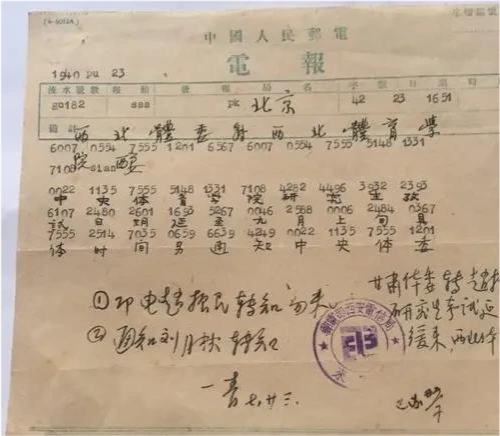 中國人民郵電
電報
1940 pu 23
流水號數 報類 發報局名 字數 日期
go182 sss pk 北京 42 23 1651
備註
西北體委轉西北體育學
6007 0554 7555 1201 6567 6007 0554 7555 5148 1331
院 西安
7108 sian
0022 1135 7555 5148 1331 7108 4282 4496 3932 2393
中央体育学院研究生考
6107 2480 2601 1693 5267 0046 2588 0006 2484 0367
试日期延至九月上旬具
7555 2514 7035 0659 6639 4249 0022 1135 7555 1201
体时间另通知中央体委
①印电赵振民转知勿来
②通知刘月秋转知
七.廿三.
甘肃体委转赵
研究生考试延
缓来,西北体